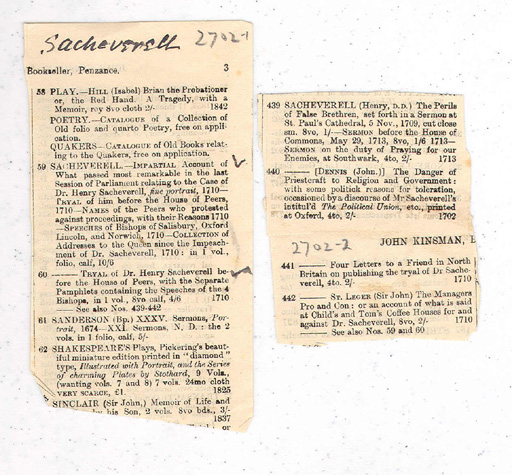 Sacheverell 2702-1
Bookseller, Penzance. 3
58 PLAY.—HILL (Isabel) Brian the Probationer
or, the Red Hand. A Tragedy, with a
Memoir, roy 8vo cloth 2/- 1842
POETRY.—CATALOGUE of a Collection of
Old folio and quarto Poetry, free on appli-
cation.
QUAKERS—CATALOGUE of Old Books relat-
ing to the Quakers, free on application.
59 SACHEVERELL.—IMPARTIAL Account of
What passed most remarkable in the last
Session of Parliament relating to the Case of
Dr. Henry Sacheverell, fine portrait, 1710—
TRYAL of him before the House of Peers,
1710—NAMES of the Peers who protested
against proceedings, with their Reasons 1710
—SPEECHES of Bishops of Salisbury, Oxford
Lincoln, and Norwich, 1710—COLLECTION of
Addresses to the Queen since the Impeach-
ment of Dr. Sacheverell, 1710: in 1 vol.,
folio, calf, 10/6
60 ——— TRYAL of Dr. Henry Sacheverell be-
fore the House of Peers, with the Separate
Pamphlets containing the Speeches of the 4
Bishops, in 1 vol., 8vo calf, 4/6 1710
——— See also Nos. 439-442
61 SANDERSON (Bp.) XXXV. Sermons, Por-
trait, 1674—XXI. Sermons, N. D. : the 2
vols. in 1 folio, calf, 5/-
62 SHAKESPEARE'S Plays, Pickering's beaut-
iful miniature edition printed in "diamond"
type, Illustrated with Portrait, and the Series
of charming Plates by Stothard, 9 Vols.,
(wanting vols. 7 and 8) 7 vols. 24mo cloth
VERY SCARCE, £1. 1825
SINCLAIR (Sir John,) Memoir of Life and
by his Son, 2 vols. 8vo bds., 3/-
1837
or
439 SACHEVERELL (Henry, D.D.) The Perils
of False Brethren, set forth in a Sermon at
St. Paul's Cathedral, 5 Nov., 1709, cut close
sm. 8vo, 1/—SERMON before the House of
Commons, May 29, 1713, 8vo, 1/6 1713—
SERMON on the duty of Praying for our
Enemies, at Southwark, 4to, 2/- 1713
440 ——— [DENNIS (John.)] The Danger of
Priestcraft to Religion and Government:
with some politick reasons for toleration,
occasioned by a discourse of Mr Sacheverell's
intitul'd The Political Union, etc., printed
at Oxford, 4to, 2/- 1702
2702-2
JOHN KINSMAN,
441 ——— Four Letters to a Friend in North
Britain on publishing the tryal of Dr Sache-
verell, 4to, 2/- 1710
442 ——— ST. LEGER (Sir John) The Managers
Pro and Con : or an account of what is said
at Child's and Tom's Coffee Houses for and
against Dr. Sacheverell, 8vo, 2/- 1710
——— See also Nos. 59 and 60